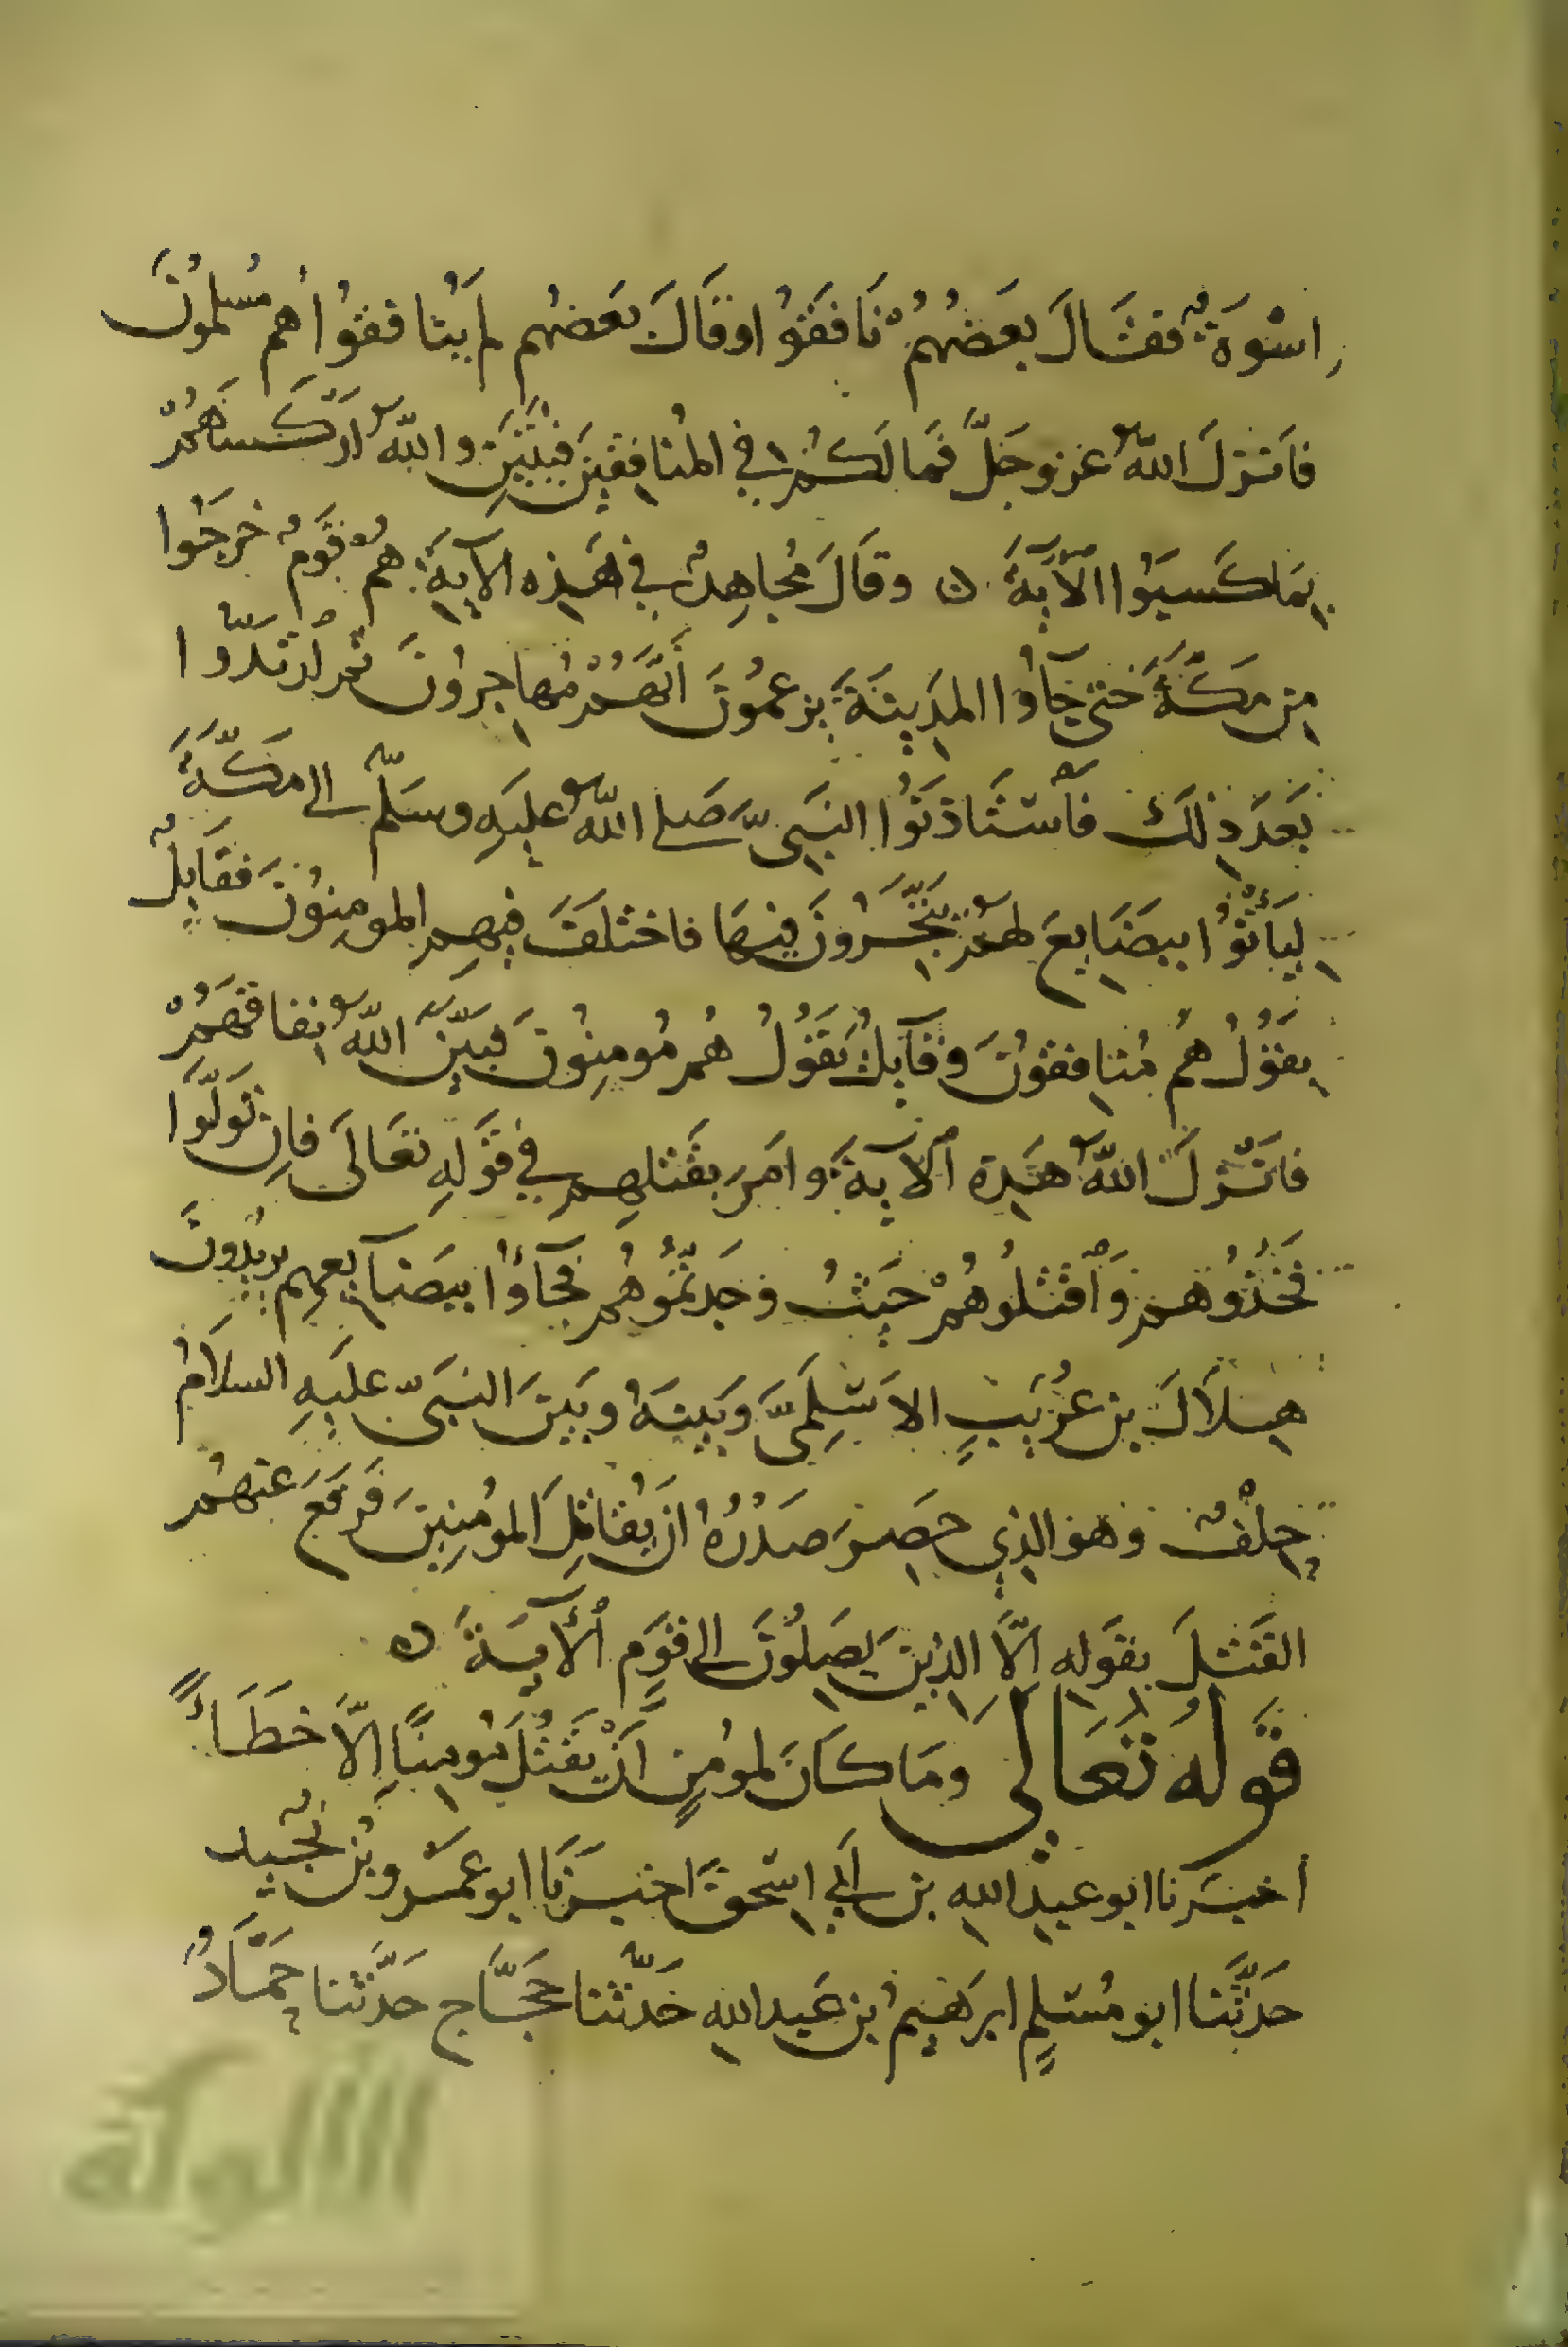 اِسْوَةٌ فقَالَ بعَضُهُمْ نَافَقوُا وقَالَ بعَضهُم لم يُنافقوُا هُم مُسْلمُونَ
فانَزلَ اللهُ عز وجَلَّ فمَا لَكُمْ في المُنافِقينَ فِئتَيْنِ واللهُ ارْكسَهُمْ
بِمَا كسَبَوُا الآيَةَ ن وقَالَ مُجاهِدٌ في هَذِه الآيةِ هُم قَومٌ خرجَوُا
مِن مَكَّةَ حتى جَآوُا المدَينَةَ يزعمُونَ أنَّهُمْ مُهاجِروُنَ ثُم ارْتَدّوا
بَعدَ ذِلَكَ فاَستَاذَنوُا النَبيَّ صَلى اللهُ عليَهِ وسَلّمَ الى مَكَّةَ
لِيَأتوُا ببِضَايعَ لهُمْ يَتَّجِرُونَ فيهَا فاختلَفَ فيهِمِ المومِنوُنَ فقَايِلٌ
يقوُلُ هُم مُنافِقوُنَ وقآيِلٌ يَقوُلُ هُم مُومِنوُنَ فبَيّنَ اللهُ نِفاقَهمُ
فانَزلَ اللهُ هَذِهِ الآيةَ وامَرَ بقَتلِهِم في قَولهِ تعَالَى فاِن تَولَّوا
فخُذوُهُم وَاقتلُوهُمْ حَيثُ وجَدتمُوُهُم فجَآوُا ببِضَآيعِهِم يرِيُدونَ
هِلاَلَ بن عُوَيمِرٍ الاَسْلَمِيَّ وبَينَهُ وبَينَ النبَيّ عليَهِ السلَامُ
حِلْفٌ وهو الذِي حصِرَ صَدْرُهُ انَ يُقاتِلَ المومُنِينَ فرَفعَ عنهُم
القَتلَ بقَولِهِ الّاَ الذِينَ يَصِلُونَ الى قَومٍ الآيَةَ ن
قَولُهُ تَعَالَى وَمَا كَانَ لمومُنٍ أَنْ يقَتُلَ مُومِناً اِلّاَ خَطَأً
اخبَرنا ابو عبدِ اللهِ بن اَبي اِسْحَقَ اخبَرنَا ابو عَمْرو بنُ نُجَيدٍ
حَدَّثَنا ابو مُسْلمٍ ابرَهيمُ بن عَبدِ اللهِ حَدّثنا حَجَّاج حَدّثنا حَمَّادٌ
الألوكة